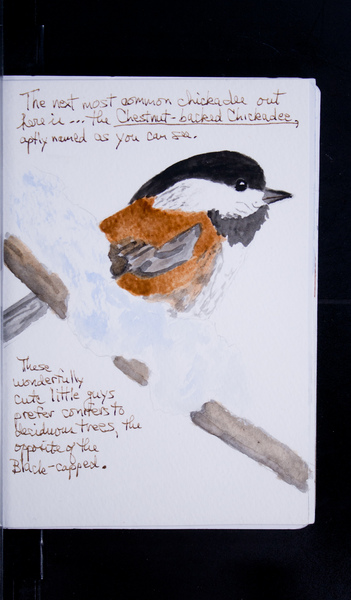 The next most common chickadee out
here is ... the Chestnut-backed Chickadee,
aptly named as you can see.
These
wonderfully
cute little guys
prefer conifers to
deciduous trees, the
opposite of the
Black-capped.